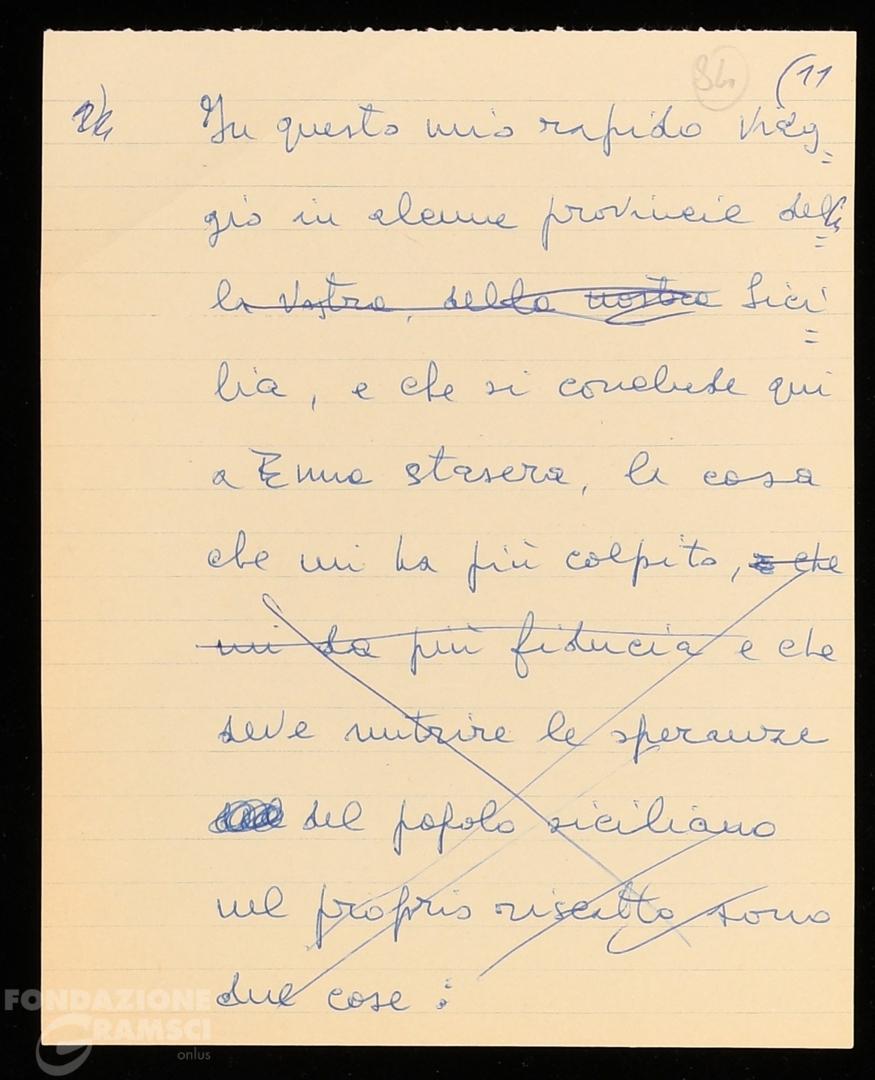 84 (11
In questo mio rapido viag=
gio in alcune provincie della=
la vostra, della nostra Sici=
lia, e che si conclude qui
a Enna stasera, la cosa
che mi ha più colpito, e che
mi da più fiducia e che
deve nutrire le speranze
del popolo siciliano
nel proprio riscatto sono
due cose :
FONDAZIONE
GRAMSCI
onlus